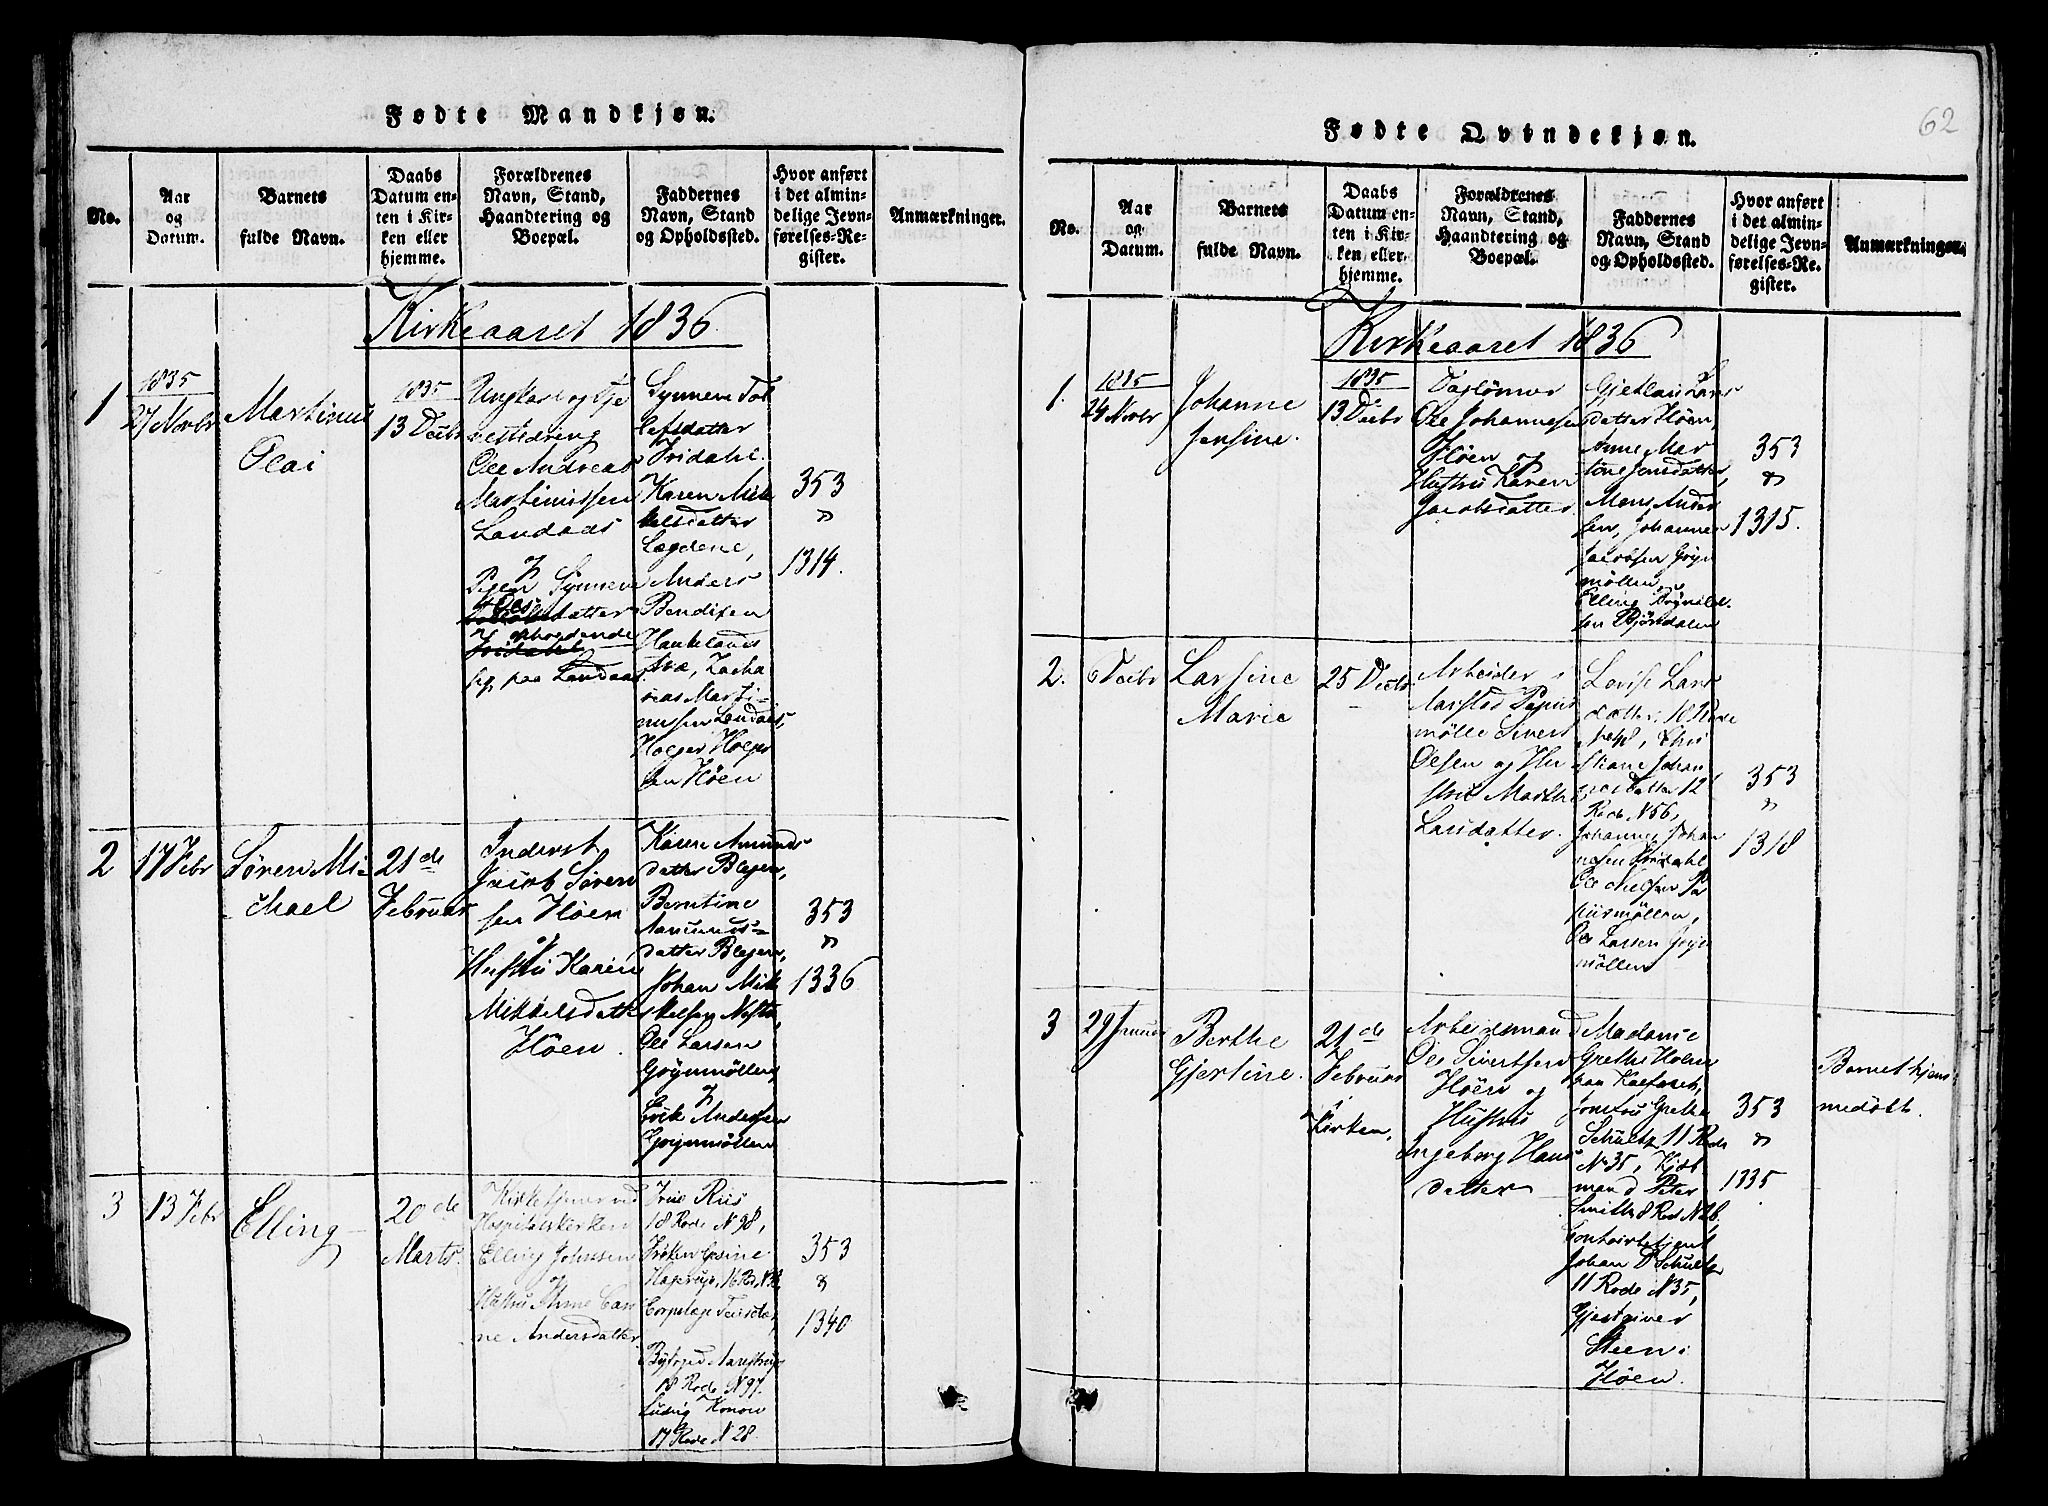 62
Fødte Mandkjøn.
No.
Aar
og
Datum.
Barnets
fulde Navn.
Daabs
Datum en-
ten i Kir-
ken eller
hjemme.
Forældrenes
Navn, Stand,
Haandtering og
Boepæl.
Faddernes
Navn, Stand
og Opholdssted.
Hvor anført
i det almin-
delige Jevn-
førelses-Re-
gister.
Anmærkninger.
Kirkeaaret 1836.
1
1835
27 Novbr
Martinus
Olai
1835
13 Decbr
Ungkarl og Tje
nestedreng
Ole Andreas
Martinussen
Landaas
og
Pigen Synneve
Olsdatter
opholdende
sig paa Landaas
Synneve Tol
lefsdatter
Fridahl.
Karen Mik
kelsdatter
Lægdene,
Anders
Bendixen
Haukelands
Zacha
rias Marti-
nussen Landaas,
Holger Holger
sen Høen
353
&
1314.
2
17 Febr
Søren Mi-
chael
21de
Februar
Inderst
Jacob Søren
sen Høen
og
Hustru Karen
Mikkelsdatter
Høen.
Karen Amunds
datter Blejen,
Berntine
Aamunds-
datter Blejen,
Johan Mik
kelsen
Ole Larsen
Grynmøllen
og
Erik Andersen
Grynmøllen
353
&
1336
3
13 Febr
Elling
20de
Marts.
Kirketjener ved
Hospitalskirken
Elling Johnsen
og
Hustru Anne Car
ne Andersdatter
Riis
18 Rode N 98,
Frøken
16 Rd.
Byfoged Aarestrup
18 Rode N 97.
Ludvig Konow
17 Rode N 28
353
&
1340
Fødte Qvindekjøn.
No.
Aar
og
Datum.
Barnets
fulde Navn.
Daabs
Datum en-
ten i Kir-
ken eller
hjemme.
Forældrenes
Navn, Stand,
Haandtering og
Boepæl.
Faddernes
Navn, Stand
og Opholdssted.
Hvor anført
i det almin-
delige Jevn-
førelses-Re-
gister.
Anmærkninger.
Kirkeaaret 1836
1.
1835
24 Novbr
Johanne
Jensine.
1835
13 Decbr
Daglønner
Ole Johannesen
Høen og
Hustru Karen
Jacobsdatter
Lars
datter Høen,
Anne Mar
tine Jensdatter,
Mons Ander
sen, Johannes
Jacobsen Gryn
møllen,
Elling
sen Bjørndalen
353
&
1315.
2.
6 Decbr
Larsine
Marie
25 Decbr
Arbeider
Aarstad Papiir
mølle Sivert
Olsen og Hu
stru Marthe
Larsdatter.
Lovise Lars
datter, 18 Rode
Chri
stiane Johan
nesdatter 12
Rode N 56,
Johannes Johan
nesen Fridahl
Ole Nielsen Pa
piirmøllen,
Ole Larsen Gryn
møllen
353
&
1318
3
29 Januar
Berthe
Gjertine.
21de
Februar
i
Kirken,
Arbeidsmand
Ole Sivertsen
Høen og
Hustru
Ingeborg Hans
datter
Madame
Grethe Holm
paa Kalfaret,
Jomfru Grethe
Schultz 11 Rode
N 35, Kjøb
mand Peter
Smith 8 Rode
Johan D Schultz
11 Rode N 35,
Gjestgiver
Steen i
Høen.
353
&
1335
Barnet hjem
medøbt.